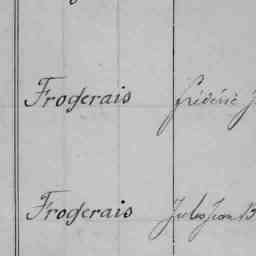 Frogerais Frédéric J
Frogerais Jules Jean B